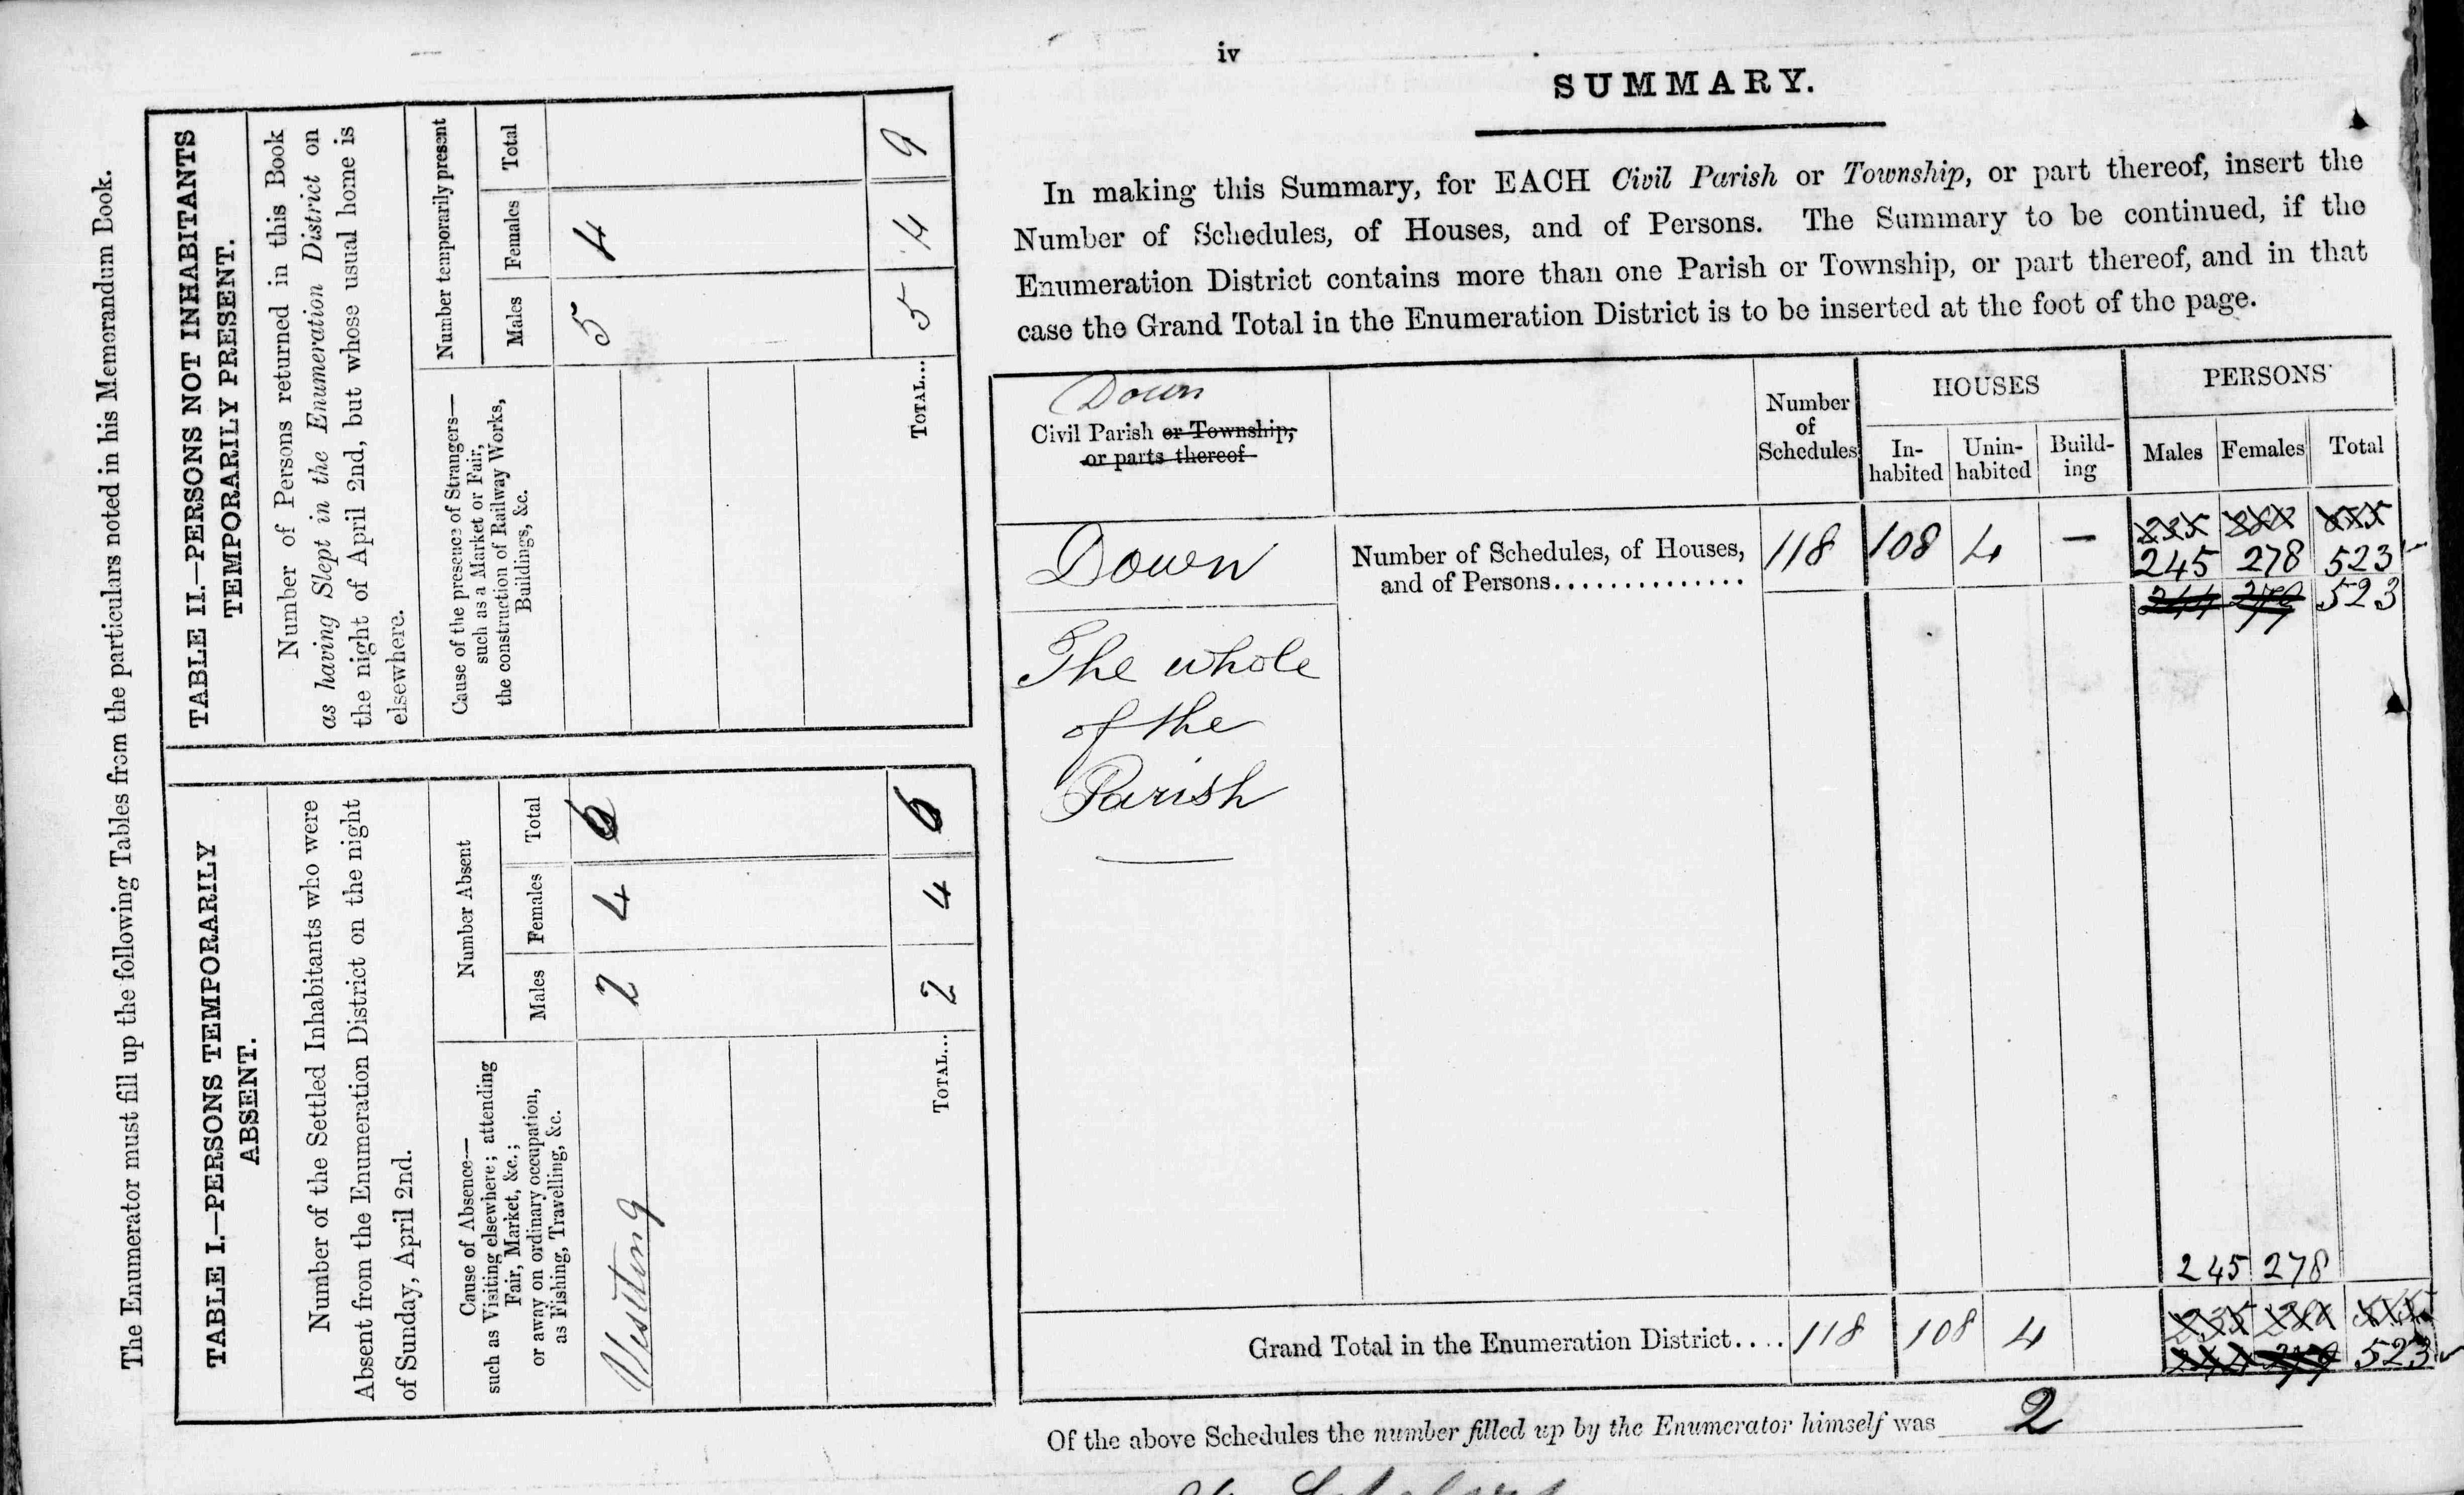 iv
The Enumerator must fill up the following Tables from the particulars noted in his Memorandum Book.
TABLE I.—PERSONS TEMPORARILY
ABSENT.
Number of the Settled Inhabitants who were
Absent from the Enumeration District on the night
of Sunday, April 2nd.
Cause of Absence—
such as Visiting elsewhere; attending
Fair, Market, &c.;
or away on ordinary occupation,
as Fishing, Travelling, &c.
Number Absent
Males Females Total
Visiting 2 4 6
TOTAL... 2 4 6
TABLE II.—PERSONS NOT INHABITANTS
TEMPORARILY PRESENT.
Number of Persons returned in this Book
as having Slept in the Enumeration District on
the night of April 2nd, but whose usual home is
elsewhere.
Cause of the presence of Strangers—
such as a Market or Fair,
the construction of Railway Works,
Buildings, &c.
Number temporarily present
Males Females Total
5 4
TOTAL... 5 4 9
SUMMARY.
In making this Summary, for EACH Civil Parish or Township, or part thereof, insert the
Number of Schedules, of Houses, and of Persons. The Summary to be continued, if the
Enumeration District contains more than one Parish or Township, or part thereof, and in that
case the Grand Total in the Enumeration District is to be inserted at the foot of the page.
Down
Civil Parish or Township,
or parts thereof
Number
of
Schedules
HOUSES
In-
habited
Unin-
habited
Build-
ing
PERSONS
Males Females Total
Down
Number of Schedules, of Houses,
and of Persons...............
118 108 4 —
245 278 523
523
The whole
of the
Parish
245 278
Grand Total in the Enumeration District.... 118 108 4
523
Of the above Schedules the number filled up by the Enumerator himself was 2